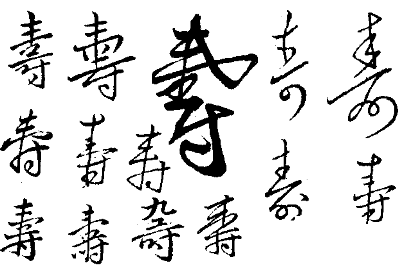 壽 壽 壽 寿 寿
壽 壽 壽 壽 壽
壽 壽 壽 壽